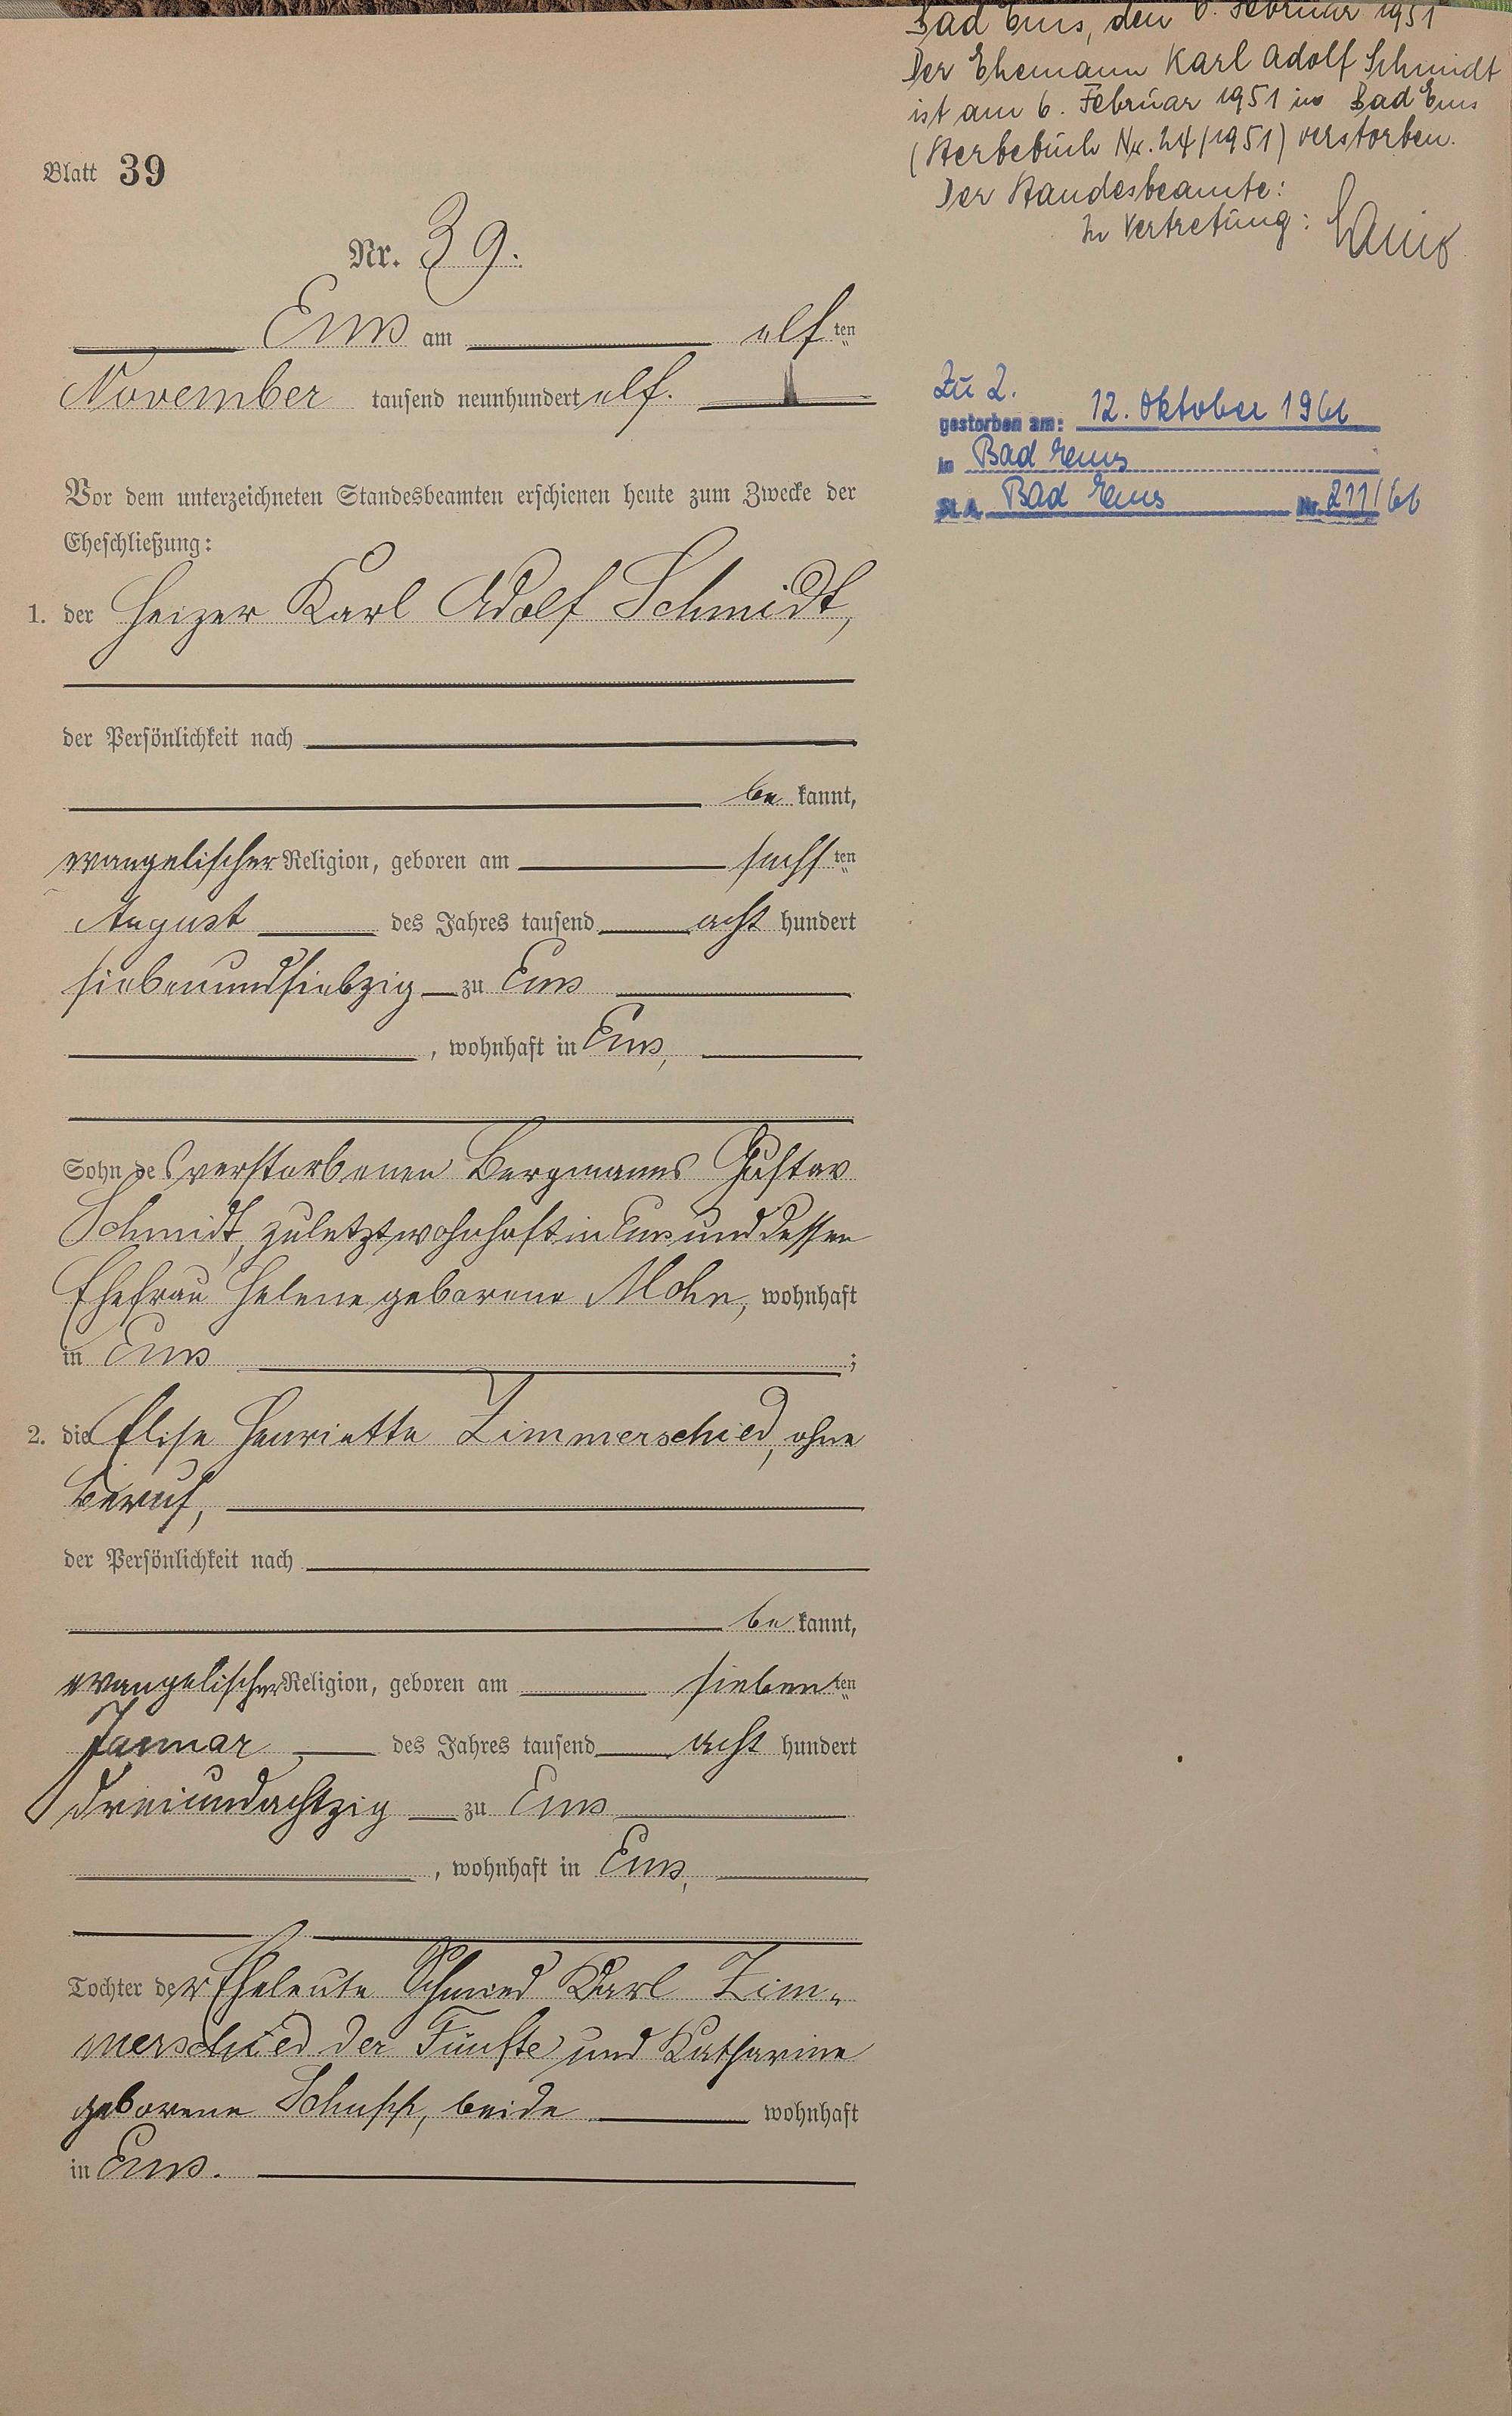 Blatt 39
Nr. 39.
Ems am elf ten
November tausend neunhundert elf.
Vor dem unterzeichneten Standesbeamten erschienen heute zum Zwecke der
Eheschließung:
1. der Heizer Karl Adolf Schmidt,
der Persönlichkeit nach
be kannt,
evangelischer Religion, geboren am sechs ten
August des Jahres tausend acht hundert
siebenundsiebzig zu Ems
, wohnhaft in Ems,
Sohn des verstorbenen Bergmanns Gustav
Schmidt, zuletzt wohnhaft in Ems und dessen
Ehefrau Helene geborene Mohn, wohnhaft
in Ems ;
2. die Elise Henriette Zimmerschied, ohne
Beruf,
der Persönlichkeit nach
be kannt,
evangelischer Religion, geboren am sieben ten
Januar des Jahres tausend acht hundert
dreiundachtzig zu Ems
, wohnhaft in Ems,
Tochter der Eheleute Schmied Karl Zim-
merschied der Fünfte und Katharine
geborene Schupp, beide wohnhaft
in Ems.
Bad Ems, den 6. Februar 1951
Der Ehemann Karl Adolf Schmidt
ist am 6. Februar 1951 in Bad Ems
(Sterbebuch Nr. 24/1951) verstorben.
Der Standesbeamte:
In Vertretung:
Zu 2.
gestorben am: 12. Oktober 1966
in Bad Ems
St. A. Bad Ems Nr. 211/66